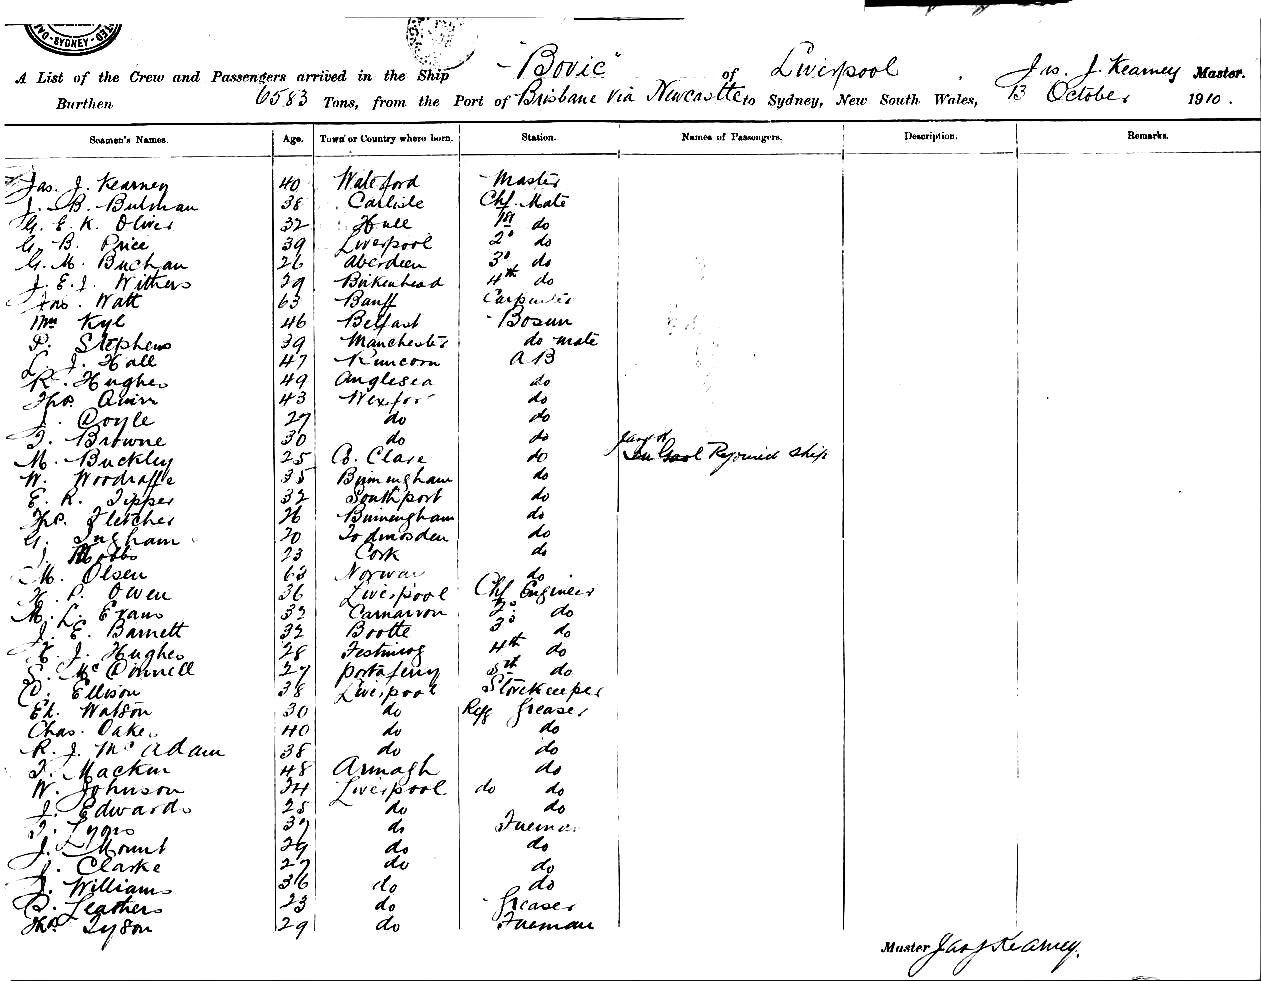 SYDNEY
A List of the Crew and Passengers arrived in the Ship "Bovic" of Liverpool, Jas. J. Kearney Master.
Burthen 6583 Tons, from the Port of Brisbane via Newcastle to Sydney, New South Wales, 13 October 1910.
Seamen's Names. Age. Town or Country where born. Station. Names of Passengers. Description. Remarks.
Jas. J. Kearney 40 Waterford Master
J. B. Bulman 38 Carlisle Chf Mate
G. E. K. Oliver 32 Hull 1st do
G. B. Price 39 Liverpool 2° do
G. M. Buchan 26 Aberdeen 3° do
J. E. J. Withers 29 Birkenhead 4th do
Jas. Watt 63 Banff Carpenter
Wm Kyl 46 Belfast Bosun
P. Stephens 39 Manchester do mate
L. J. Hall 47 Runcorn AB
R. Hughes 49 Anglesea do
Thos. Quinn 43 Wexfor do
J. Coyle 27 do do
T. Browne 30 do do
M. Buckley 25 Co. Clare do In Gaol Rejoined Ship
W. Woodraffe 35 Birmingham do
E. R. Tipper 32 Southport do
Thos. Fletcher 26 Birmingham do
G. Ingham 20 Todmorden do
J. Mobbs 23 Cork do
M. Olsen 63 Norway do
H. P. Owen 36 Liverpool Chf Engineer
M. L. Evans 32 Carnarvon 2° do
J. E. Barnett 32 Bootle 3° do
H. J. Hughes 28 Festiniog 4th do
S. McConnell 27 Portaferry 5th do
C. Ellison 38 Liverpool Storekeeper
Ed. Watson 30 do Refg Greaser
Chas. Oakes 40 do do
R. J. McAdam 38 do do
T. Mackin 48 Armagh do
W. Johnson 24 Liverpool do do
J. Edwards 25 do do
T. Lyons 37 do Fireman
J. Mount 29 do do
J. Clarke 27 do do
J. Williams 36 do do
B. Leathers 23 do Greaser
Thos. Tyson 29 do Fireman
Master Jas J Kearney.